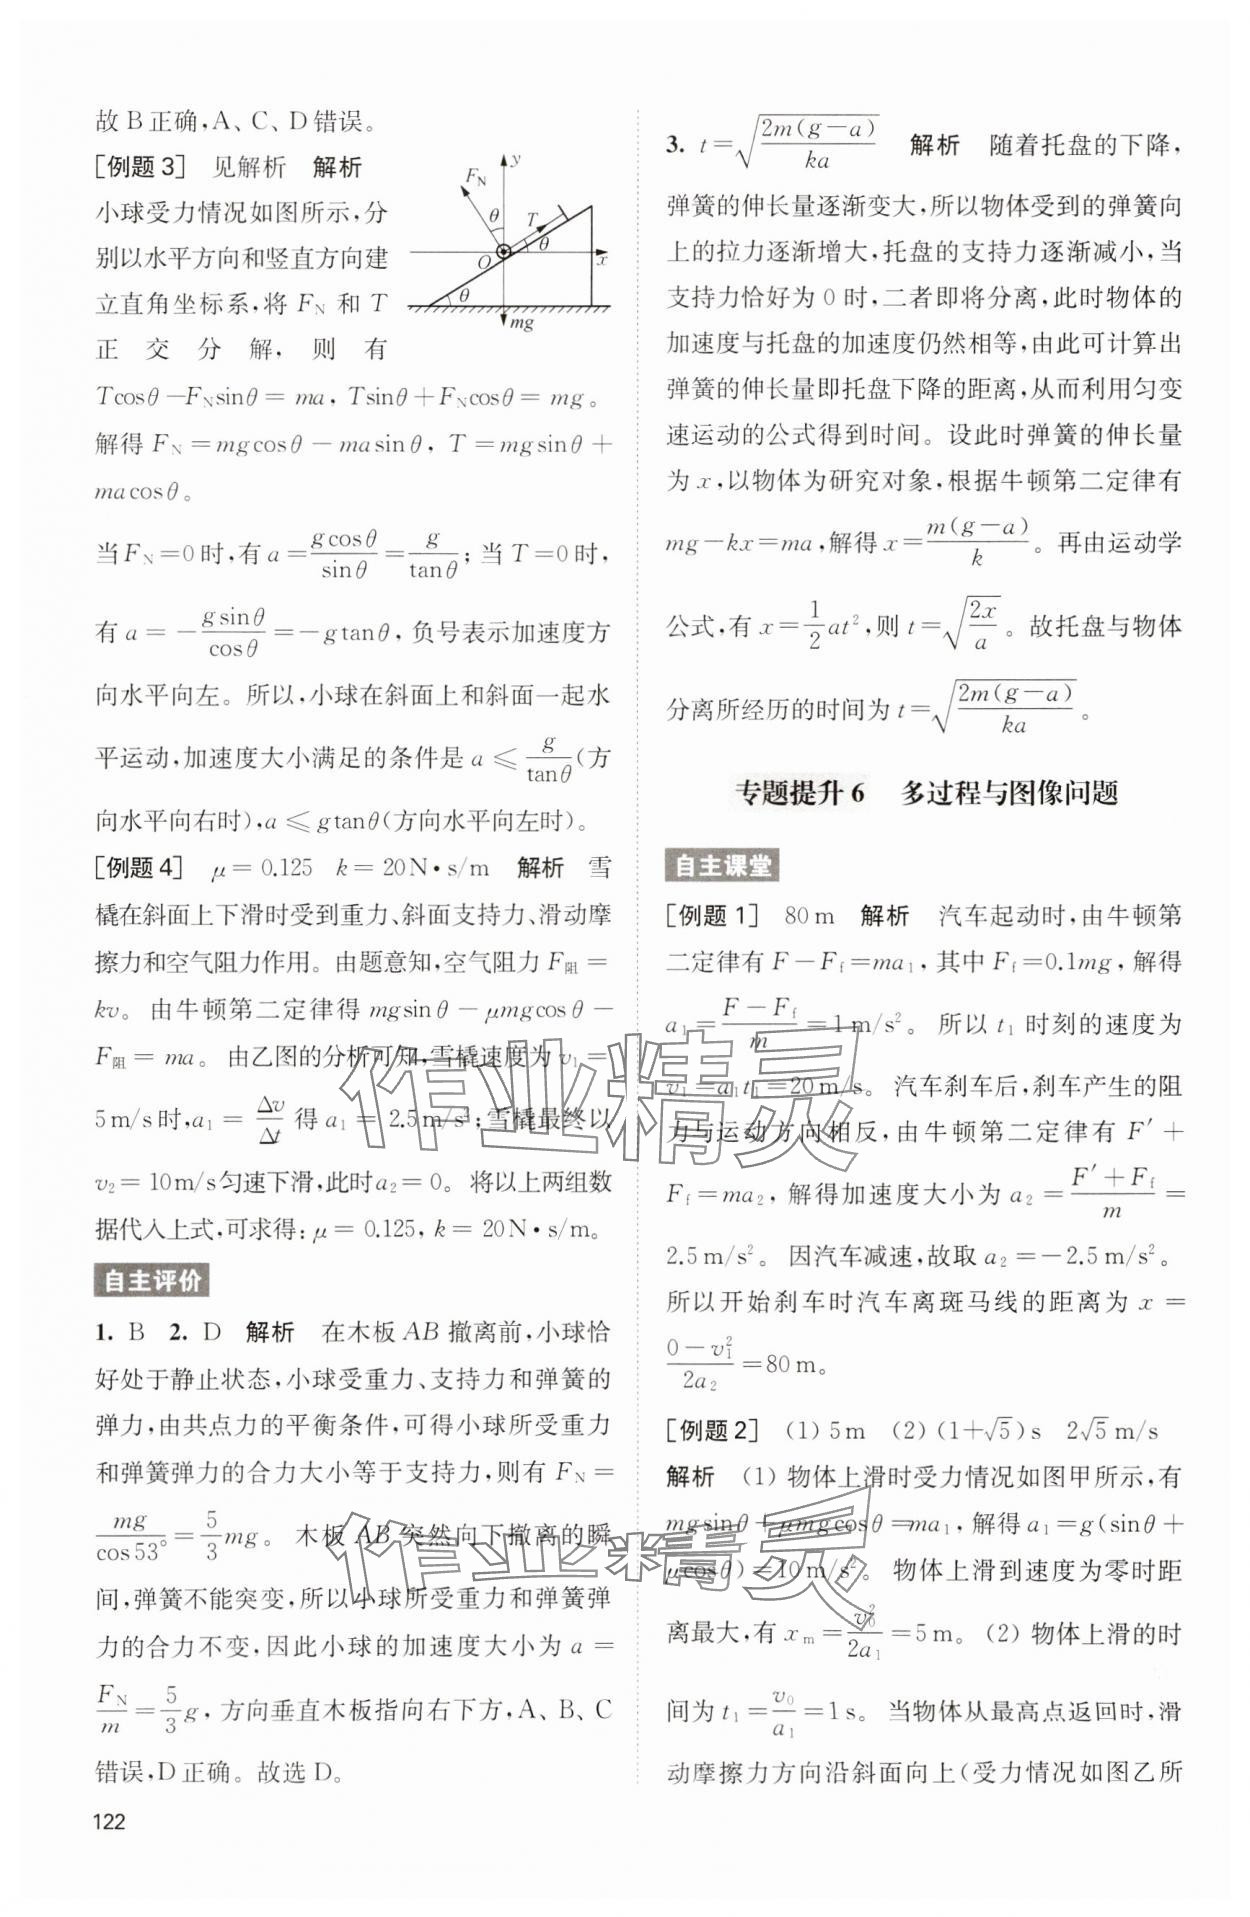 故B正确,A、C、D错误。
[例题3] 见解析 解析
小球受力情况如图所示,分
别以水平方向和竖直方向建
立直角坐标系,将 F_N 和 T
正交分解,则有
Tcosθ-F_Nsinθ=ma,Tsinθ+F_Ncosθ=mg。
解得 F_N=mgcosθ-masinθ,T=mgsinθ+
macosθ。
当F_N=0时,有a=gcosθ/sinθ=g/tanθ;当T=0时,
有a=-gsinθ/cosθ=-gtanθ,负号表示加速度方
向水平向左。所以,小球在斜面上和斜面一起水
平运动,加速度大小满足的条件是a≤g/tanθ(方
向水平向右时),a≤gtanθ(方向水平向左时)。
[例题4] μ=0.125 k=20N•s/m 解析 雪
橇在斜面上下滑时受到重力、斜面支持力、滑动摩
擦力和空气阻力作用。由题意知,空气阻力F阻=
kv。由牛顿第二定律得 mgsinθ-μmgcosθ-
F阻=ma。由乙图的分析可知,雪橇速度为v₁=
5m/s时,a₁=Δv/Δt得a₁=2.5m/s²;雪橇最终以
v₂=10m/s匀速下滑,此时a₂=0。将以上两组数
据代入上式,可求得:μ=0.125,k=20N•s/m。
自主评价
1. B 2. D 解析 在木板AB撤离前,小球恰
好处于静止状态,小球受重力、支持力和弹簧的
弹力,由共点力的平衡条件,可得小球所受重力
和弹簧弹力的合力大小等于支持力,则有F_N=
mg/cos53°=5/3mg。木板AB突然向下撤离的瞬
间,弹簧不能突变,所以小球所受重力和弹簧弹
力的合力不变,因此小球的加速度大小为a=
F_N/m=5/3g,方向垂直木板指向右下方,A、B、C
错误,D正确。故选D。
122
F_N
y
θ
T
θ
O
x
θ
mg
3. t=√(2m(g-a)/ka) 解析 随着托盘的下降,
弹簧的伸长量逐渐变大,所以物体受到的弹簧向
上的拉力逐渐增大,托盘的支持力逐渐减小,当
支持力恰好为0时,二者即将分离,此时物体的
加速度与托盘的加速度仍然相等,由此可计算出
弹簧的伸长量即托盘下降的距离,从而利用匀变
速运动的公式得到时间。设此时弹簧的伸长量
为x,以物体为研究对象,根据牛顿第二定律有
mg-kx=ma,解得x=m(g-a)/k。再由运动学
公式,有x=1/2at²,则t=√(2x/a)。故托盘与物体
分离所经历的时间为t=√(2m(g-a)/ka)。
专题提升6 多过程与图像问题
自主课堂
[例题1] 80m 解析 汽车起动时,由牛顿第
二定律有F-F_f=ma₁,其中F_f=0.1mg,解得
a₁=(F-F_f)/m=1m/s²。所以t₁时刻的速度为
v₁=a₁t₁=20m/s。汽车刹车后,刹车产生的阻
力与运动方向相反,由牛顿第二定律有F′+
F_f=ma₂,解得加速度大小为a₂=(F′+F_f)/m=
2.5m/s²。因汽车减速,故取a₂=-2.5m/s²。
所以开始刹车时汽车离斑马线的距离为x=
(0-v₁²)/2a₂=80m。
[例题2] (1)5m (2)(1+√5)s 2√5m/s
解析 (1)物体上滑时受力情况如图甲所示,有
mgsinθ+μmgcosθ=ma₁,解得a₁=g(sinθ+
μcosθ)=10m/s²。物体上滑到速度为零时距
离最大,有x_m=v₀²/2a₁=5m。(2)物体上滑的时
间为t₁=v₀/a₁=1s。当物体从最高点返回时,滑
动摩擦力方向沿斜面向上(受力情况如图乙所
作业精灵
作业精灵